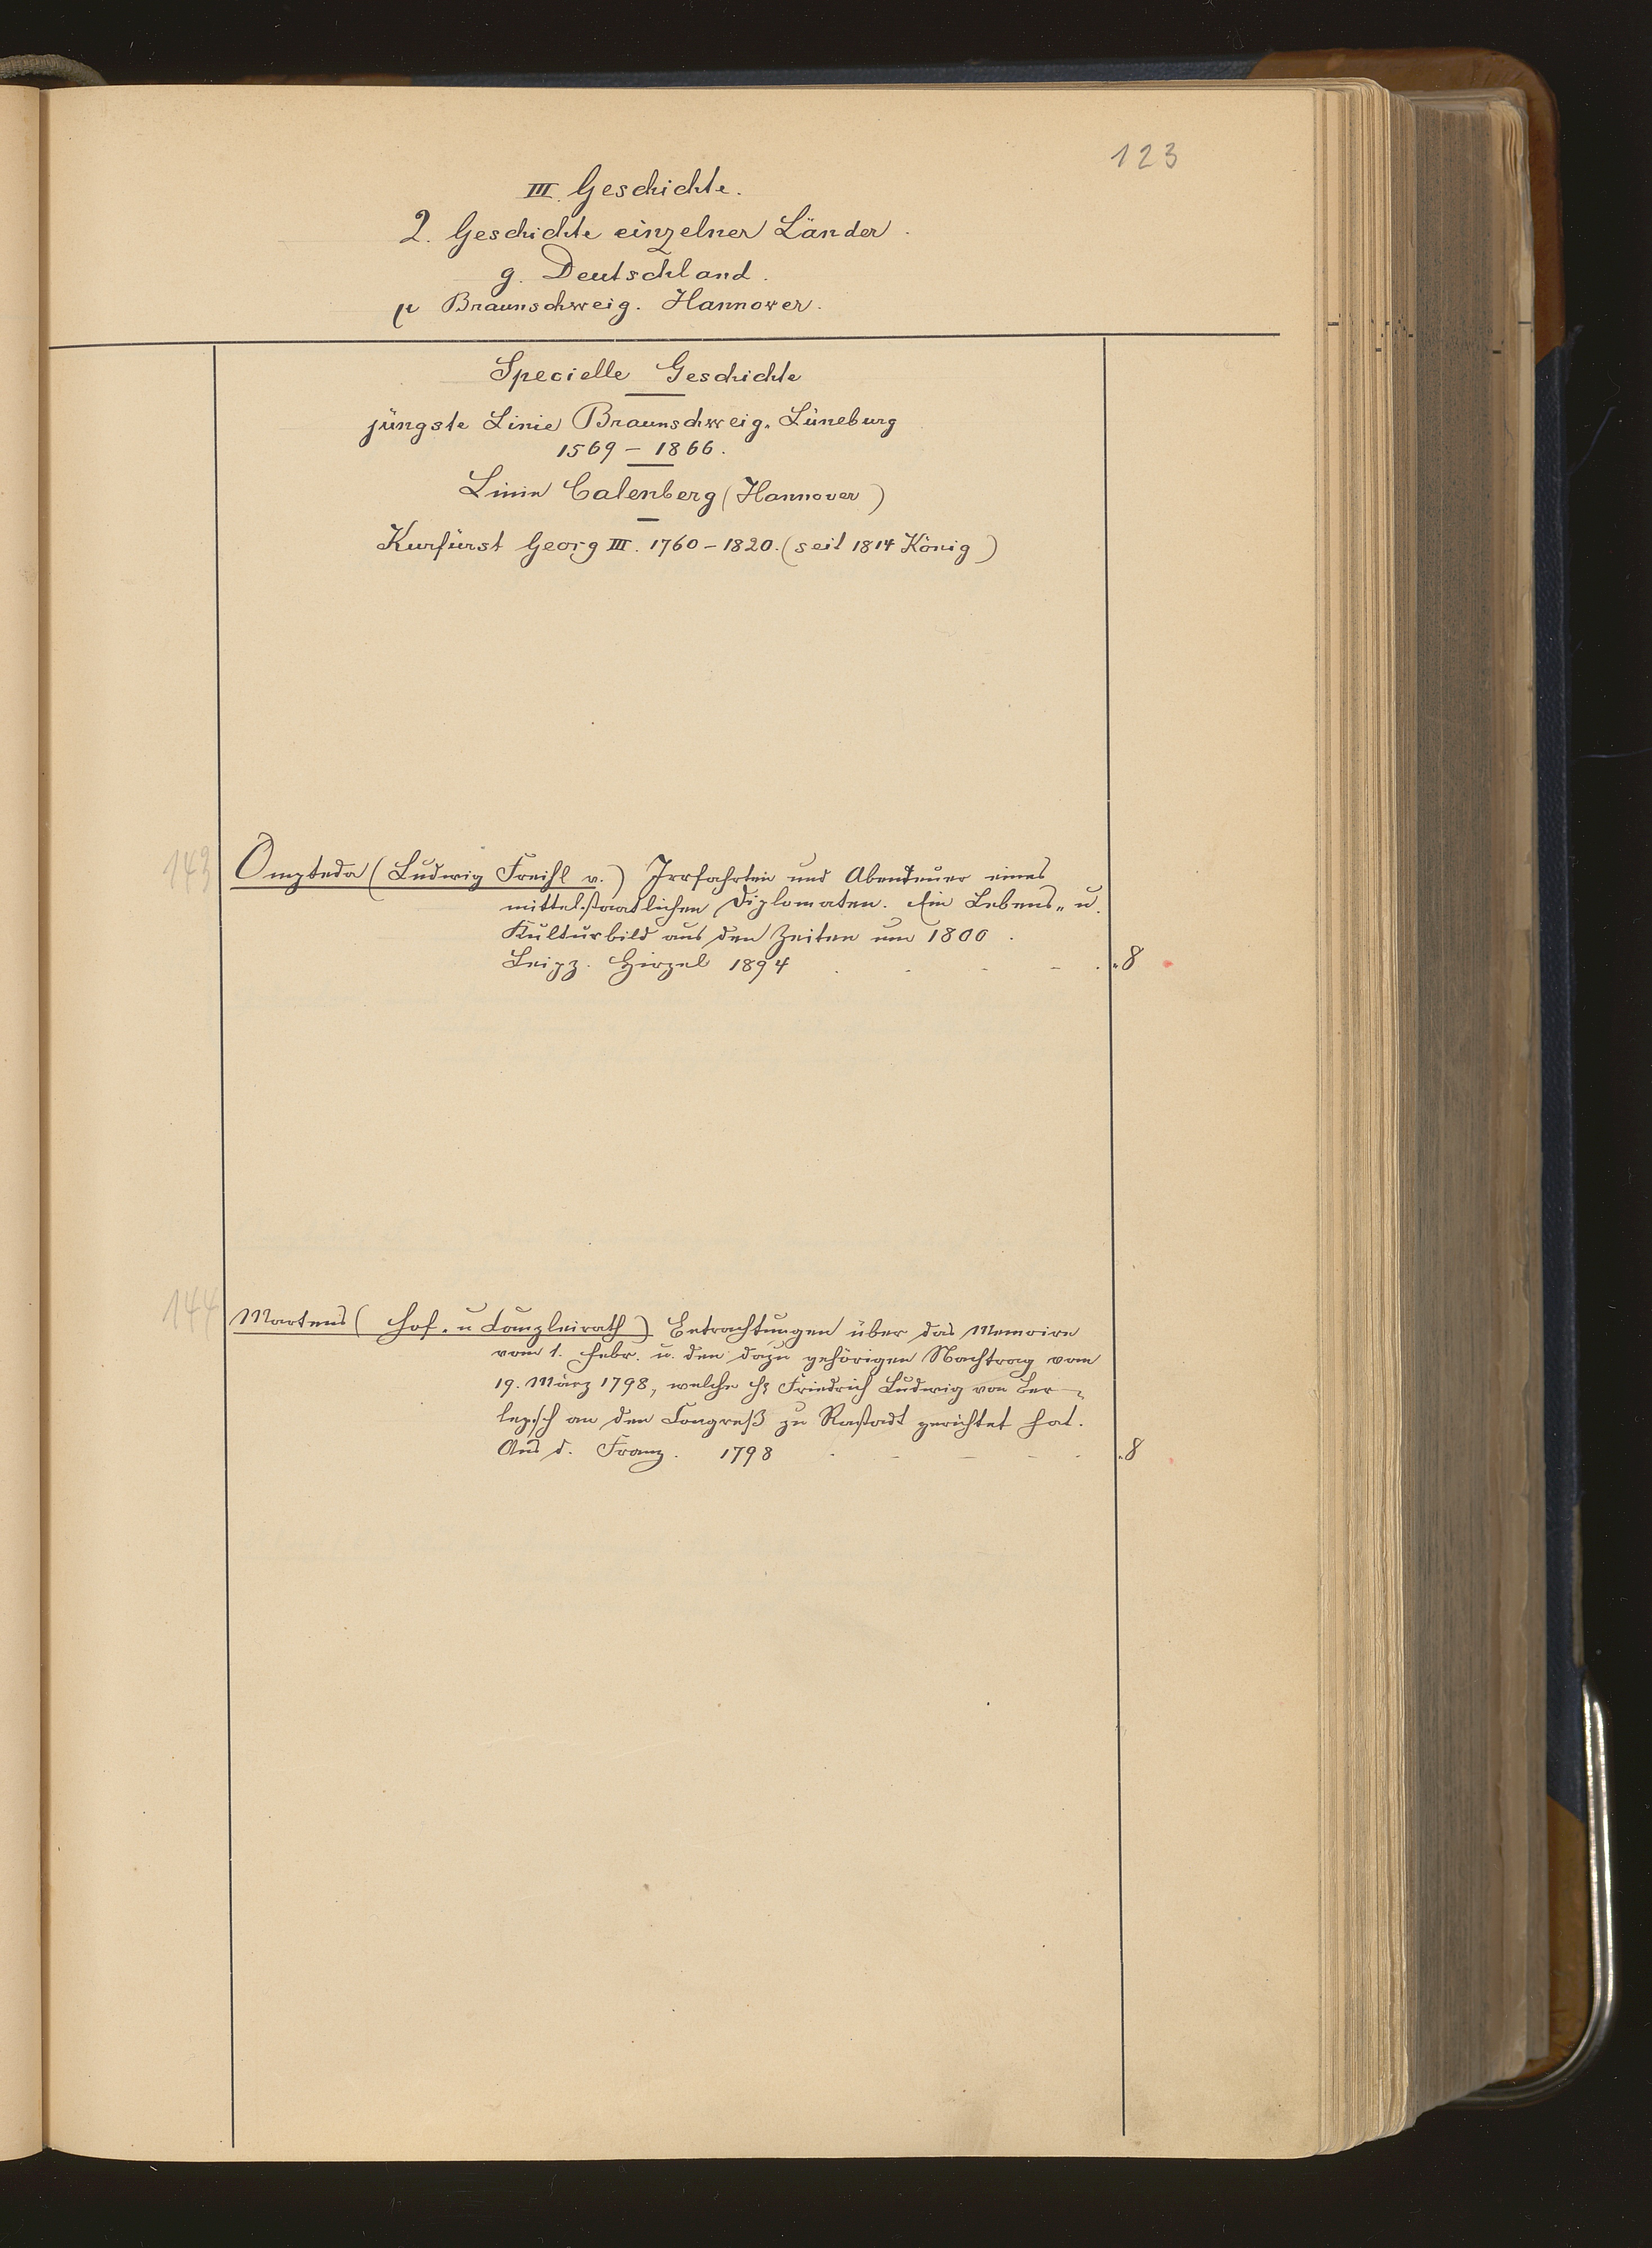 123
III. Geschichte.
2. Geschichte einzelner Länder.
g. Deutschland.
μ Braunschweig. Hannover.
Specielle Geschichte
jüngste Linie Braunschweig-Lüneburg
1569 - 1866.
Linie Calenberg (Hannover)
Kurfürst Georg III. 1760-1820. (seit 1814 König)
143 Ompteda (Ludwig Freihl v.) Irrfahrten und Abenteuer eines
mittelstaatlichen Diplomaten. Ein Lebens- u.
Kulturbild aus den Zeiten um 1800.
Leipz. Hirzel 1894 . . - - . „8
144 Martens (Hof- u Canzleirath) Betrachtungen über das Memoire
vom 1. Febr. u. den dazu gehörigen Nachtrag vom
19. März 1798, welche Hr Friedrich Ludwig von Ber-
lepsch an den Congreß zu Rastadt gerichtet hat.
Aus d. Franz. 1798 . - - - . „8